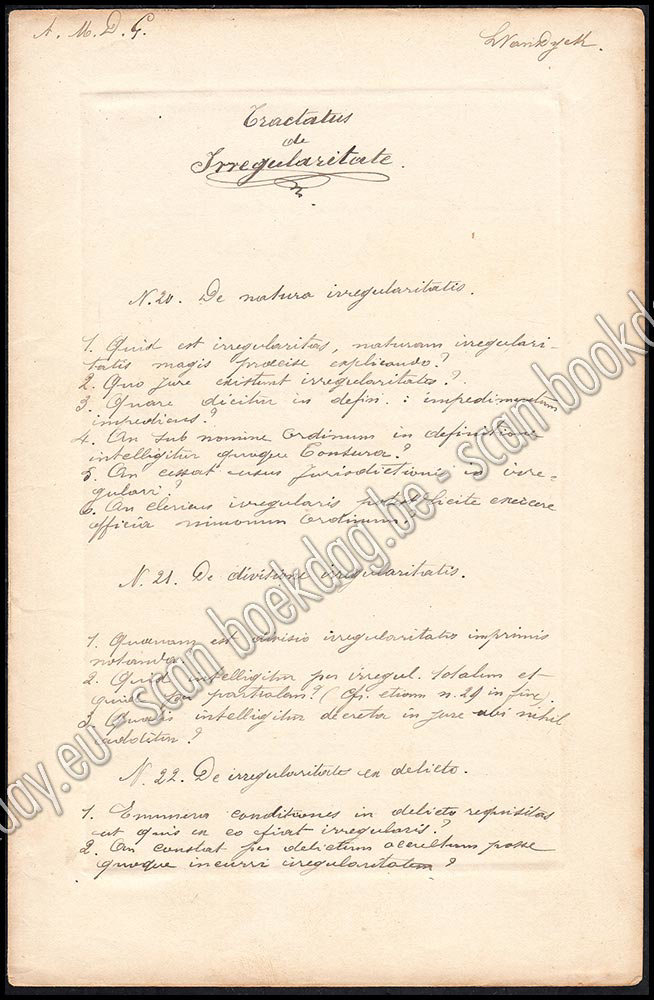 A. M. D. G.
LVanDyck.
Tractatus
de
Irregularitate.
N. 20. De natura irregularitatis.
1. Quid est irregularitas, naturam irregulari-
tatis magis præcise explicando?
2. Quo jure existunt irregularitates?
3. Quare dicitur in defin. : impedimentum
impediens?
4. An sub nomine Ordinum in definitione
intelligitur quoque Tonsura?
5. An cessat usus Jurisdictionis in irre-
gulari?
6. An clericus irregularis potest licite exercere
officia minorum Ordinum?
N. 21. De divisione irregularitatis.
1. Quænam est divisio irregularitatis imprimis
notanda.
2. Quid intelligitur per irregul. totalem et
quid per partialem? (Cfr. etiam n. 29 in fine).
3. Qualis intelligitur decreta in jure ubi nihil
additur?
N. 22. De irregularitate ex delicto.
1. Enumera conditiones in delicto requisitas
ut quis ex eo fiat irregularis?
2. An constat per delictum occultum posse
quoque incurri irregularitatem?
day.eu - scan boekdag.be - scan boekda